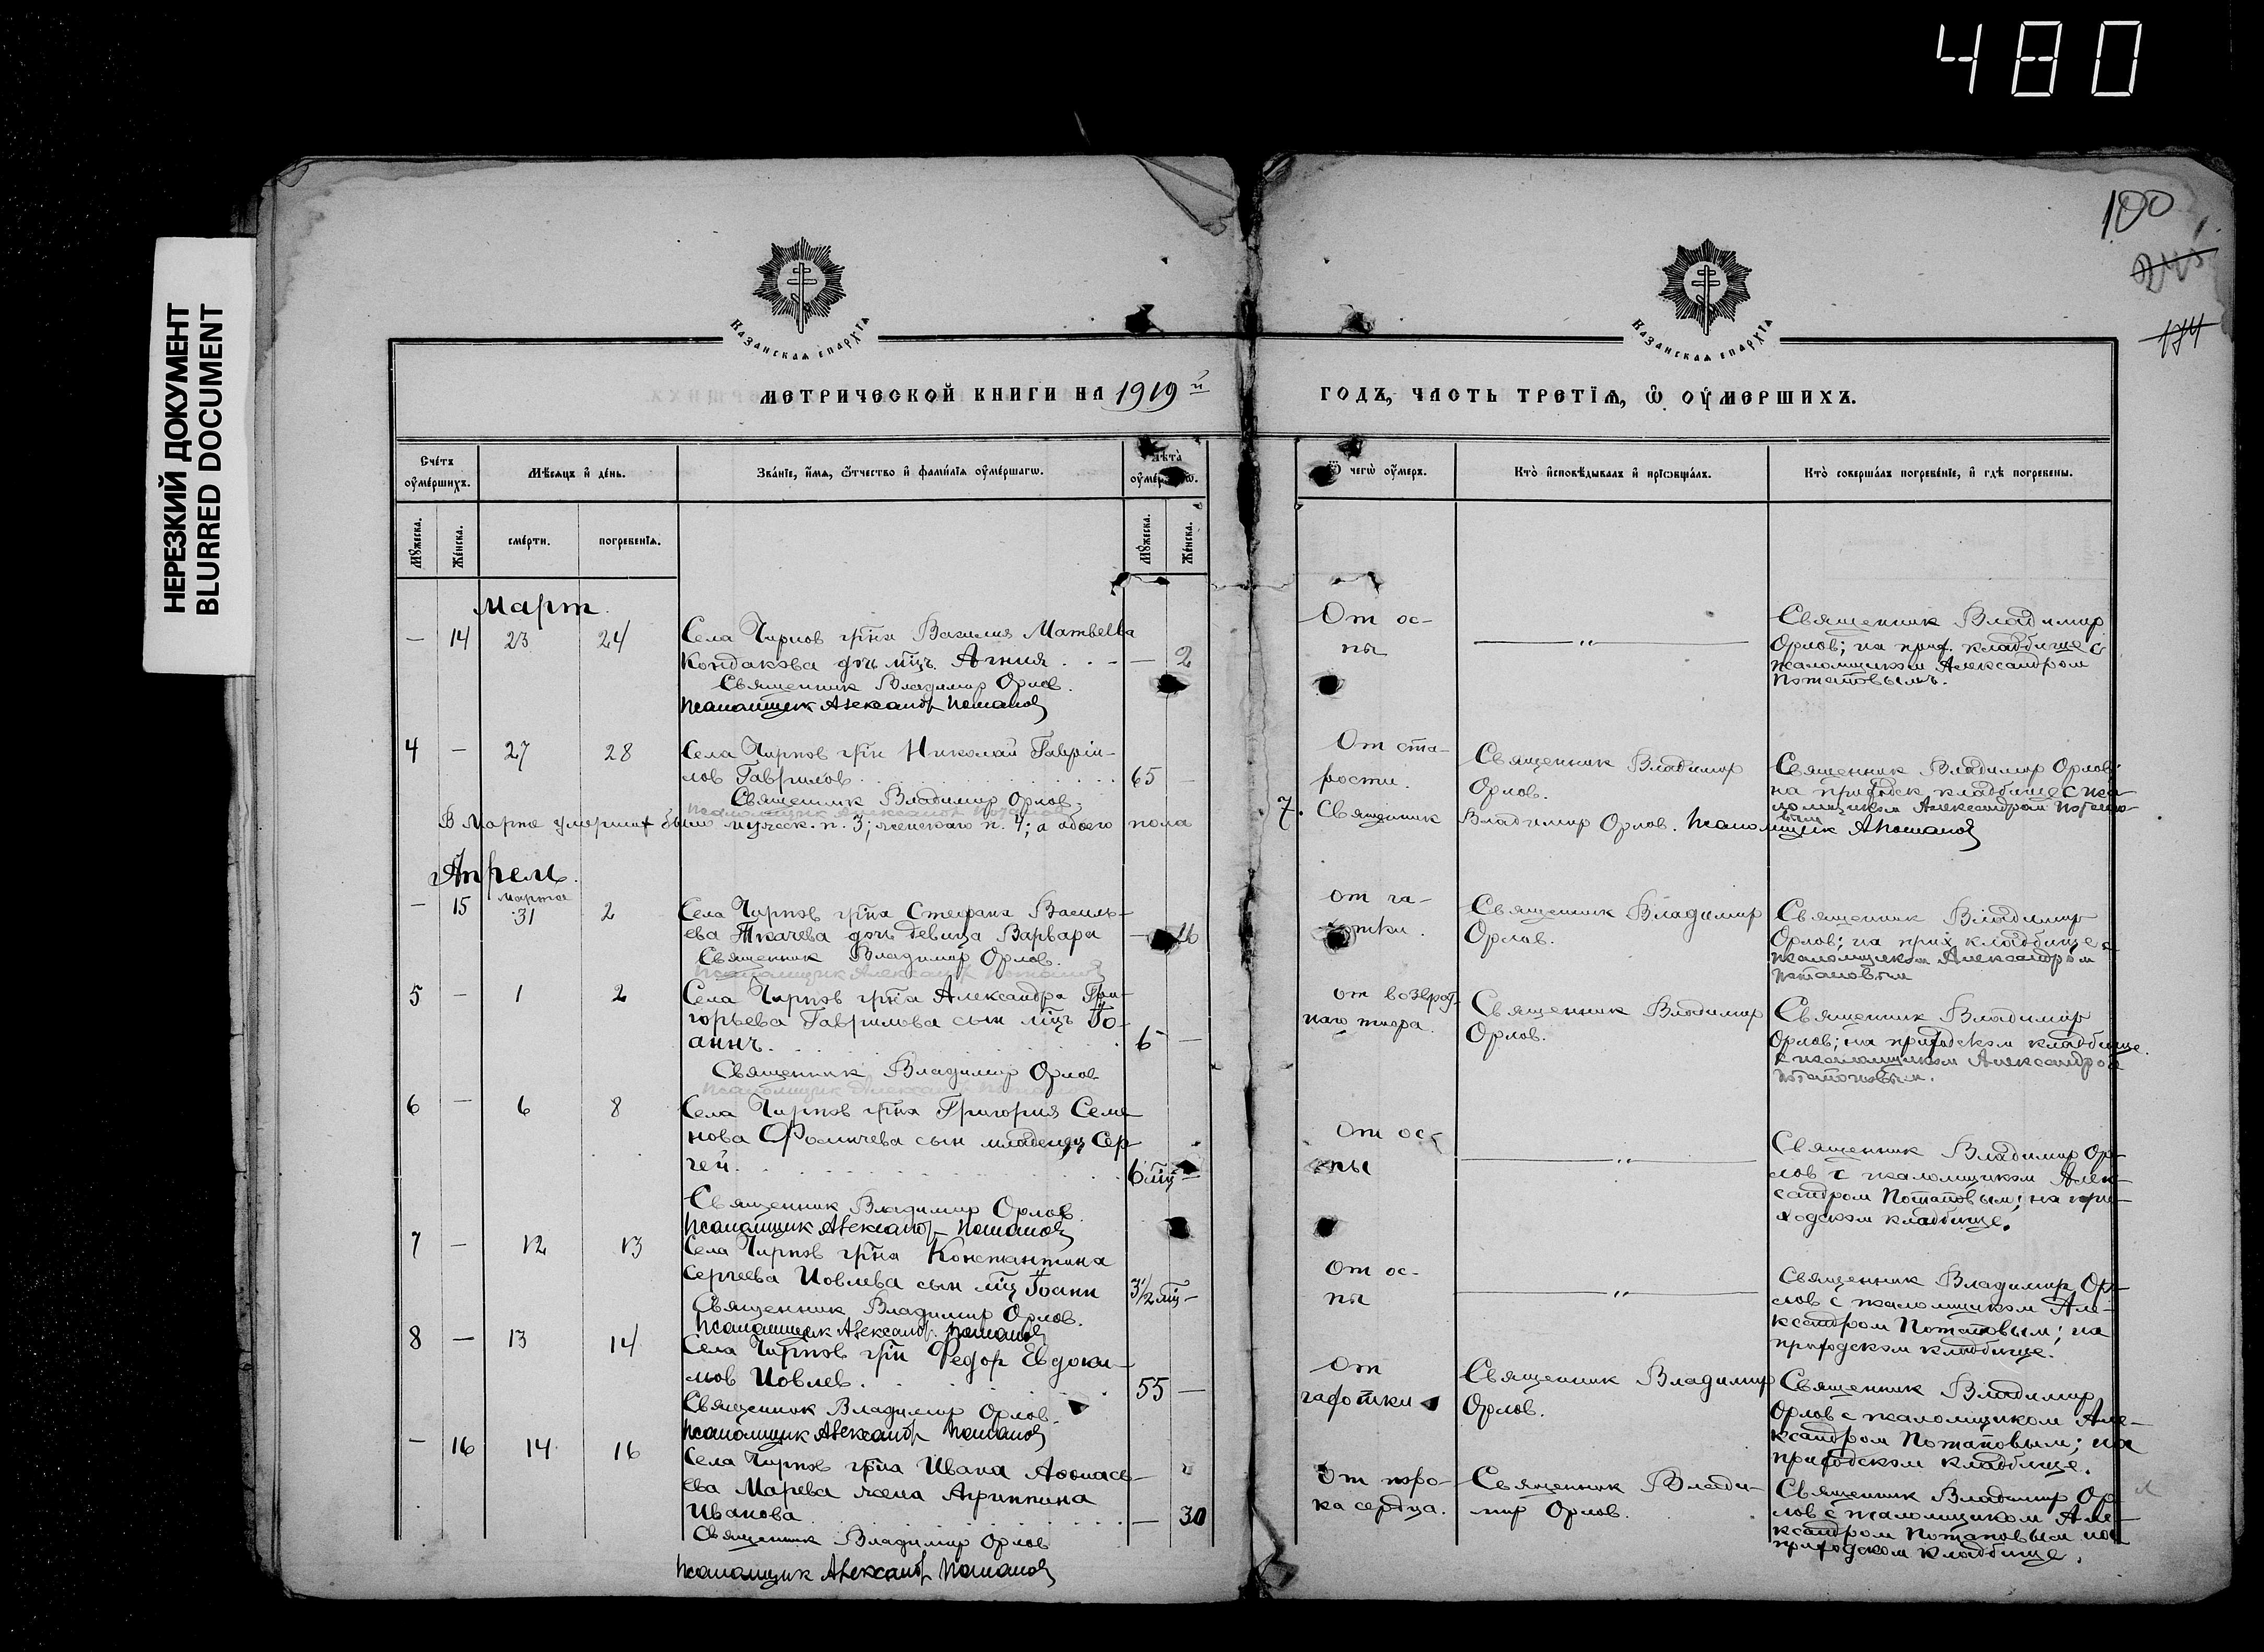 480
НЕРЕЗКИЙ ДОКУМЕНТ
BLURRED DOCUMENT
100
174
КАЗАНСКАЯ ЕПАРХІЯ
КАЗАНСКАЯ ЕПАРХІЯ
МЕТРИЧЕСКОЙ КНИГИ НА 1919й ГОДЪ, ЧАСТЬ ТРЕТІѦ, Ѿ ОУМЕРШИХЪ.
Счетъ оумершихъ.
Мѣсяцъ и день.
Званіе, имя, отчество и фамилія оумершагѡ.
Лѣта оумершагѡ.
Ѿ чегѡ оумеръ.
Кто исповѣдывалъ и пріѡбщалъ.
Кто совершалъ погребеніе, и гдѣ погребены.
Мужеска.
Женска.
смерти.
погребенія.
Мужеска.
Женска.
Март.
— 14 23 24
Села Чирпов гр‑на Василия Матвеева
Кондакова дочь мцъ Агния . . — 2
Священник Владимир Орлов.
Псаломщик Александр Потапов
От ос-
пы
— „ —
Священник Владимир
Орлов; на прих. кладбище с
псаломщиком Александром
Потаповымъ.
4 — 27 28
Села Чирпов гр‑н Николай Гаврии-
лов Гаврилов . . . 65 —
Священник Владимир Орлов.
Псаломщик Александр Потапов
От ста-
рости.
Священник Владимир
Орлов.
Священник Владимир Орлов;
на приходск кладбище с пса-
ломщиком Александром Потапо-
вым
В Марте умерших было мужеск. п. 3; женскаго п. 4; а обоего пола 7. Священник Владимир Орлов. Псаломщик А Потапов
Апрель.
— 15 марта 31 2
Села Чирпов гр‑на Стефана Василь-
ева Ткачева дочь девица Варвара — 16
Священник Владимир Орлов.
Псаломщик Александр Потапов
от ча-
хотки.
Священник Владимир
Орлов.
Священник Владимир
Орлов; на прих кладбище с
псаломщиком Александром
Потаповым
5 — 1 2
Села Чирпов гр‑на Александра Гри-
горьева Гаврилова сын мцъ Іо-
аннъ . . . 6 —
Священник Владимир Орлов
Псаломщик Александр Потапов
от возврат-
наго тифа.
Священник Владимир
Орлов.
Священник Владимир
Орлов; на приходском кладбище
с псаломщиком Александром
Потаповым.
6 — 6 8
Села Чирпов гр‑на Григория Семе-
нова Фомичева сын младенец Сер-
гей . . . 6 мц —
Священник Владимир Орлов
Псаломщик Александр Потапов
От ос-
пы
— „ —
Священник Владимир Ор-
лов с псаломщиком Алек-
сандром Потаповым; на при-
ходском кладбище.
7 — 12 13
Села Чирпов гр‑на Константина
Сергеева Иовлева сын мцъ Іоанн 3½ мц —
Священник Владимир Орлов.
Псаломщик Александр Потапов
От ос-
пы
— „ —
Священник Владимир Ор-
лов с псаломщиком Але-
ксандром Потаповым; на
приходском кладбище.
8 — 13 14
Села Чирпов гр‑н Федор Евдоки-
мов Иовлев . . . 55 —
Священник Владимир Орлов.
Псаломщик Александр Потапов
От
чахотки
Священник Владимир
Орлов.
Священник Владимир
Орлов с псаломщиком Але-
ксандром Потаповым; на
приходском кладбище.
— 16 14 16
Села Чирпов гр‑на Ивана Афонась-
ева Марева жена Агриппина
Иванова . . . — 30
Священник Владимир Орлов
Псаломщик Александр Потапов
От поро-
ка сердца.
Священник Влади-
мир Орлов.
Священник Владимир Ор-
лов с псаломщиком Але-
ксандром Потаповым на
приходском кладбище.